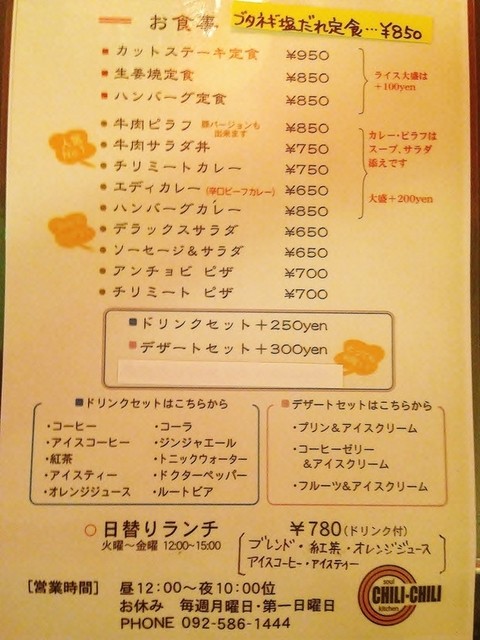 お食事
ブタネギ塩だれ定食…¥850
カットステーキ定食 ¥950
生姜焼定食 ¥850
ハンバーグ定食 ¥850
ライス大盛は
+100yen
牛肉ピラフ 豚バージョンも出来ます ¥850
牛肉サラダ丼 ¥750
チリミートカレー ¥750
エディカレー (辛口ビーフカレー) ¥650
ハンバーグカレー ¥850
カレー・ピラフは
スープ、サラダ
添えです
大盛+200yen
デラックスサラダ ¥650
ソーセージ&サラダ ¥650
アンチョビ ピザ ¥700
チリミート ピザ ¥700
ドリンクセット+250yen
デザートセット+300yen
■ドリンクセットはこちらから
・コーヒー ・コーラ
・アイスコーヒー ・ジンジャエール
・紅茶 ・トニックウォーター
・アイスティー ・ドクターペッパー
・オレンジジュース ・ルートビア
■デザートセットはこちらから
・プリン&アイスクリーム
・コーヒーゼリー
&アイスクリーム
・フルーツ&アイスクリーム
○日替りランチ ¥780(ドリンク付)
火曜〜金曜 12:00~15:00
ブレンド・紅茶・オレンジジュース
アイスコーヒー・アイスティー
[営業時間] 昼12:00〜夜10:00位
お休み 毎週月曜日・第一日曜日
PHONE 092-586-1444
soul
CHILI-CHILI
kitchen